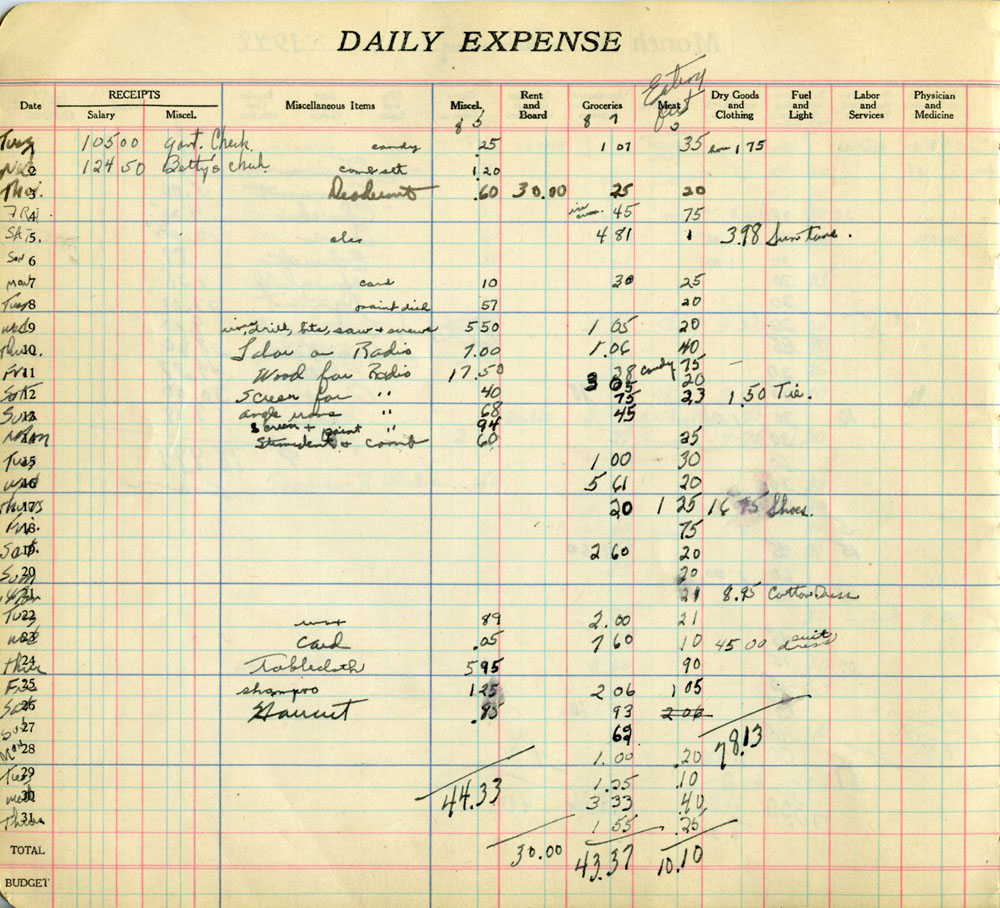 DAILY EXPENSE
Date RECEIPTS Salary Miscel. Miscellaneous Items Miscel. Rent and Board Groceries Meat Eating Out Dry Goods and Clothing Fuel and Light Labor and Services Physician and Medicine
85 87
Tues 1 105 00 Govt. Check. candy .25 1 07 35 1 75
Wed 2 124 50 Betty's check comb set 1 20
Thu. 3 Deodorant .60 30.00 25 20
FRI 4 ice cream 45 75
SAT 5. 4 81 1 3.98 Sun tans.
Sun 6
Mon 7 card 10 30 25
Tues 8 paint dish 57 20
Wed 9 drill, bits, saw + screws 5 50 1 05 20
Thur. 10 Idar on Radio 7.00 1.06 40
Fri 11 Wood for Radio 17.50 38 candy 75
Sat 12 Screen for " 40 3 65 20 1.50 Tie.
Sun 13 angle irons " 68 75 23
Mon 14 Screen + paint " 94 45
+ comb 60 25
Tues 15 1 00 30
Wed 16 5 61 20
Thurs 17 20 1 25 16 95 Shoes.
Fri. 18 75
Sat. 19 2 60 20
Sun 20 20
21 21 8.95 Cotton Dress
Tues 22 wax 89 2.00 21
Wed 23 Card .05 7 60 10 45 00 suit dress
Thur 24 Tablecloth 5 95 90
Fri 25 shampoo 1 25 2 06 1 05
Sat 26 Haircut .85 93 2 06
Sun 27 69 78.13
Mon 28 1.00 .20
Tues 29 44.33 1.25 .10
Wed 30 3 33 .40
Thurs 31 1 55 .25
TOTAL 30.00 43.37 10.10
BUDGET